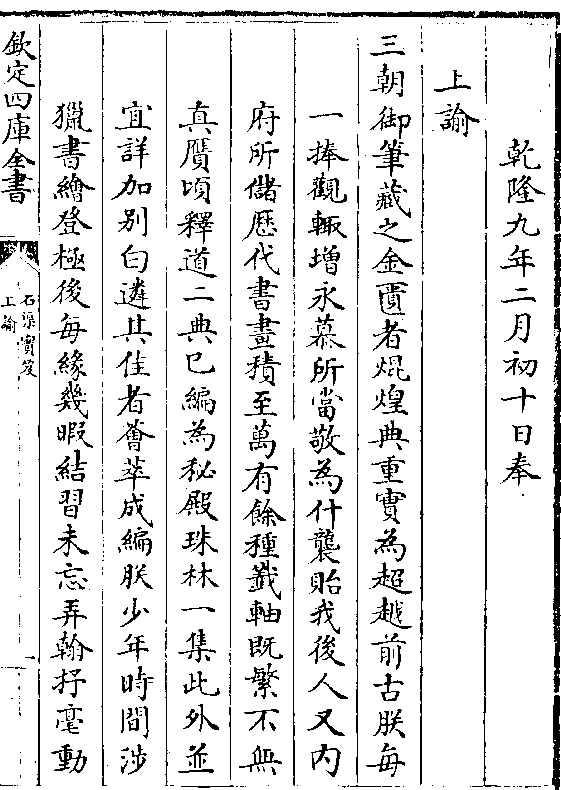 乾隆九年二月初十日奉
上諭
三朝御筆藏之金匱者焜煌典重實為超越前古朕每
一捧觀輙增永慕所當敬為什襲貽我後人又内
府所儲歴代書畫積至萬有餘種籖軸既繁不無
真贋頃釋道二典已編為秘殿珠林一集此外並
宜詳加别白遴其佳者薈萃成編朕少年時間涉
獵書繪登極後每緣幾暇結習未忘弄翰抒毫動
欽定四庫全書
石渠寳笈
上諭
一